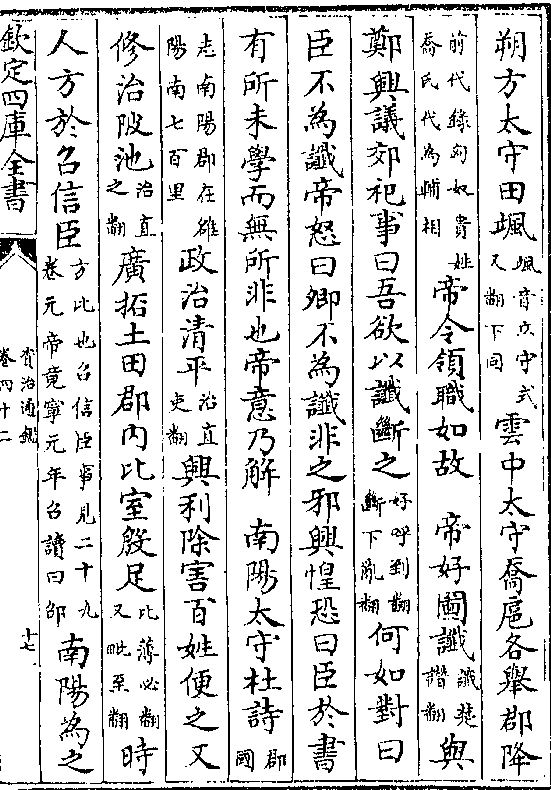 朔方太守田颯颯音立守式又翻下同雲中太守喬扈各舉郡降
前代錄匈奴貴姓喬氏代為輔相帝令領職如故　帝好圖讖讖楚譖翻與
鄭興議郊祀事曰吾欲以讖斷之好呼到翻斷丁亂翻何如對曰
臣不為讖帝怒曰卿不為讖非之邪興惶恐曰臣於書
有所未學而無所非也帝意乃解　南陽太守杜詩郡國
志南陽郡在雒陽南七百里政治清平治直吏翻興利除害百姓便之又
修治陂池治直之翻廣拓土田郡內比室殷足比薄必翻又毗至翻時
人方於召信臣方比也召信臣事見二十九卷元帝竟寧元年召讀曰邵南陽為之
欽定四庫全書
資治通鑑
卷四十二
十七